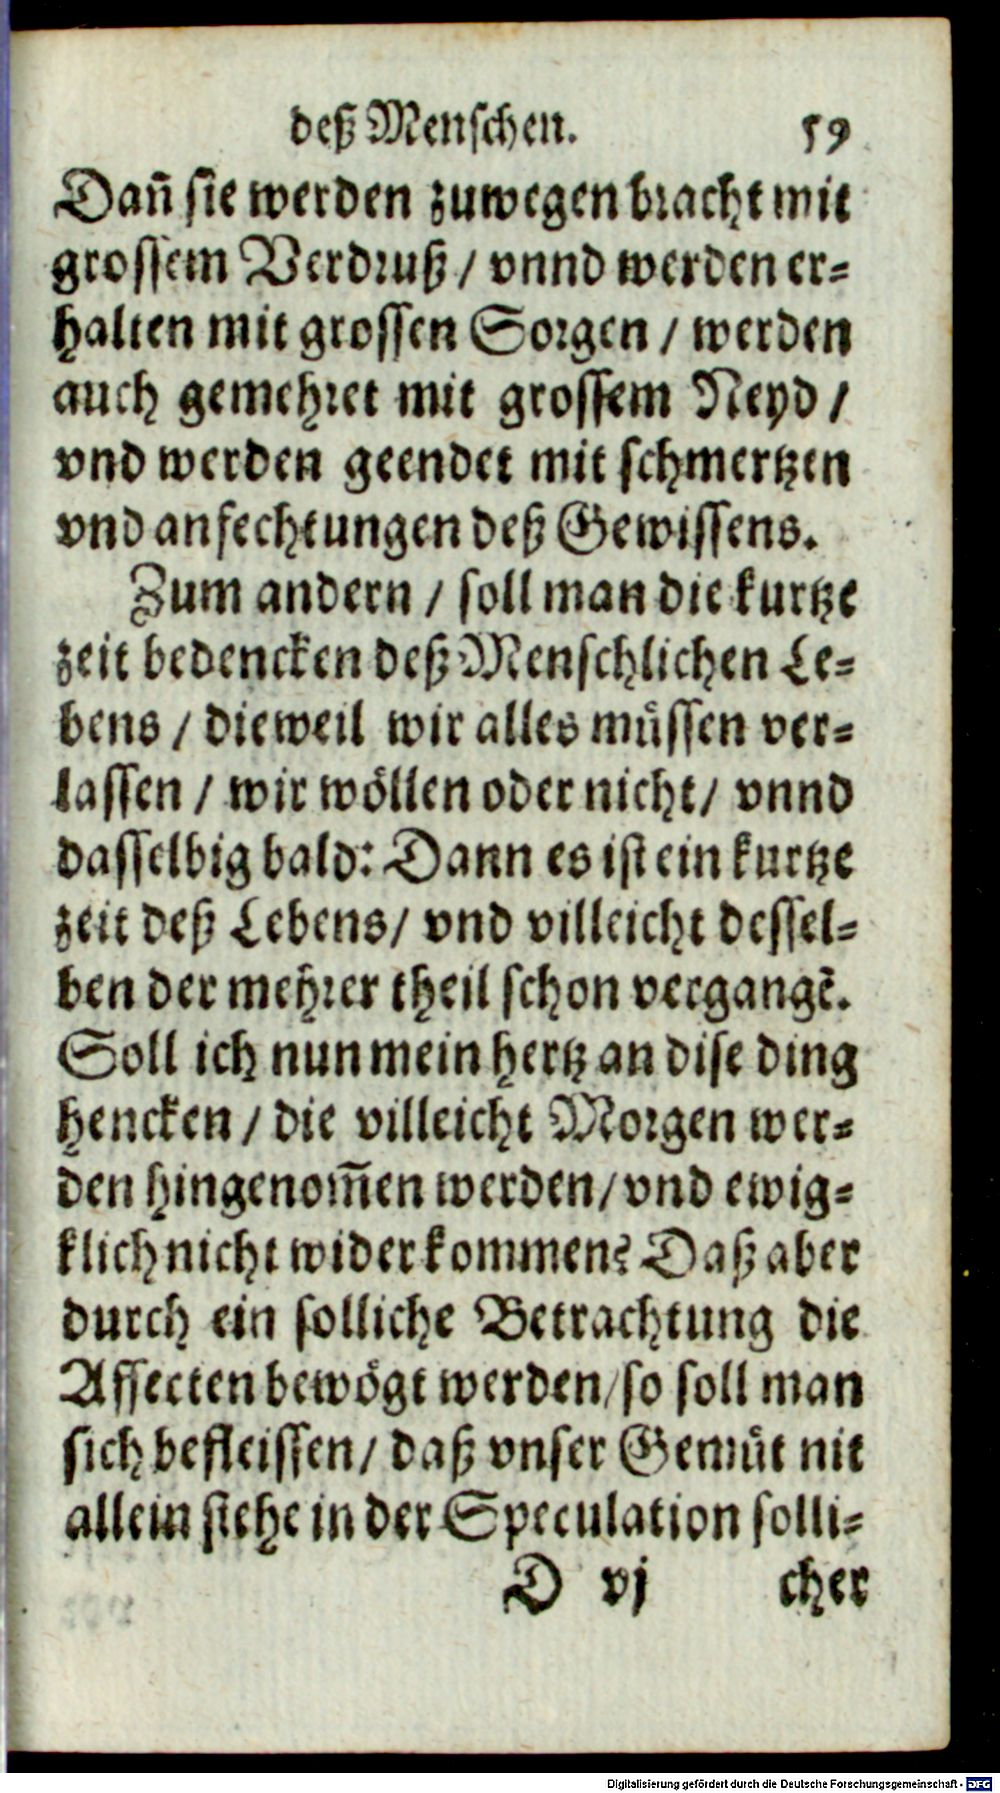 deß Menschen. 59
Dañ sie werden zuwegen bracht mit
grossem Verdruß / vnnd werden er-
halten mit grossen Sorgen / werden
auch gemehret mit grossem Neyd /
vnd werden geendet mit schmertzen
vnd anfechtungen deß Gewissens.
Zum andern / soll man die kurtze
zeit bedencken deß Menschlichen Le-
bens / dieweil wir alles müssen ver-
lassen / wir wöllen oder nicht / vnnd
dasselbig bald: Dann es ist ein kurtze
zeit deß Lebens / vnd villeicht dessel-
ben der mehrer theil schon vergangẽ.
Soll ich nun mein hertz an dise ding
hencken / die villeicht Morgen wer-
den hingenom̃en werden / vnd ewig-
klich nicht widerkommen? Daß aber
durch ein solliche Betrachtung die
Affecten bewögt werden / so soll man
sich befleissen / daß vnser Gemüt nit
allein stehe in der Speculation solli-
D vj cher
Digitalisierung gefördert durch die Deutsche Forschungsgemeinschaft - DFG